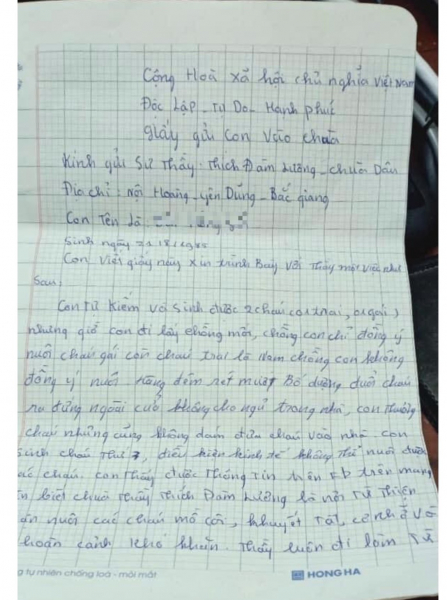 Cộng Hoà xã hội chủ nghĩa việt Nam
Độc Lập - Tự Do - Hạnh phúc
Giấy gửi con vào chùa
Kính gửi Sư Thầy: Thích Đàm Lương - chùa Dân
Địa chỉ: Nội Hoàng - yên Dũng - Bắc giang
Con Tên là
Sinh ngày
Con viết giấy này xin trình Bày với Thầy một việc như
Sau:
con và Sinh được 2 cháu (1 trai, 1 gái)
nhưng giờ con đi lấy chồng mới, chồng con chỉ đồng ý
nuôi cháu gái còn cháu trai là Nam chồng con không
đồng ý nuôi Hàng đêm rét mướt Bố dượng đuổi cháu
ra đứng ngoài cửa không cho ngủ trong nhà, con thương
cháu nhưng cũng không dám đưa cháu vào nhà. con
sinh cháu Thứ 3, điều kiện kinh tế không thể nuôi được
các cháu. con thấy được Thông Tin trên Fb trên mạng
biết chùa Thầy Thích Đàm Lương là nơi Từ Thiện
nuôi các cháu mồ côi, khuyết tật, cơ nhỡ và
hoàn cảnh khó khăn. Thầy luôn đi làm Từ
g tự nhiên chống loá - mỏi mắt
HONG HA